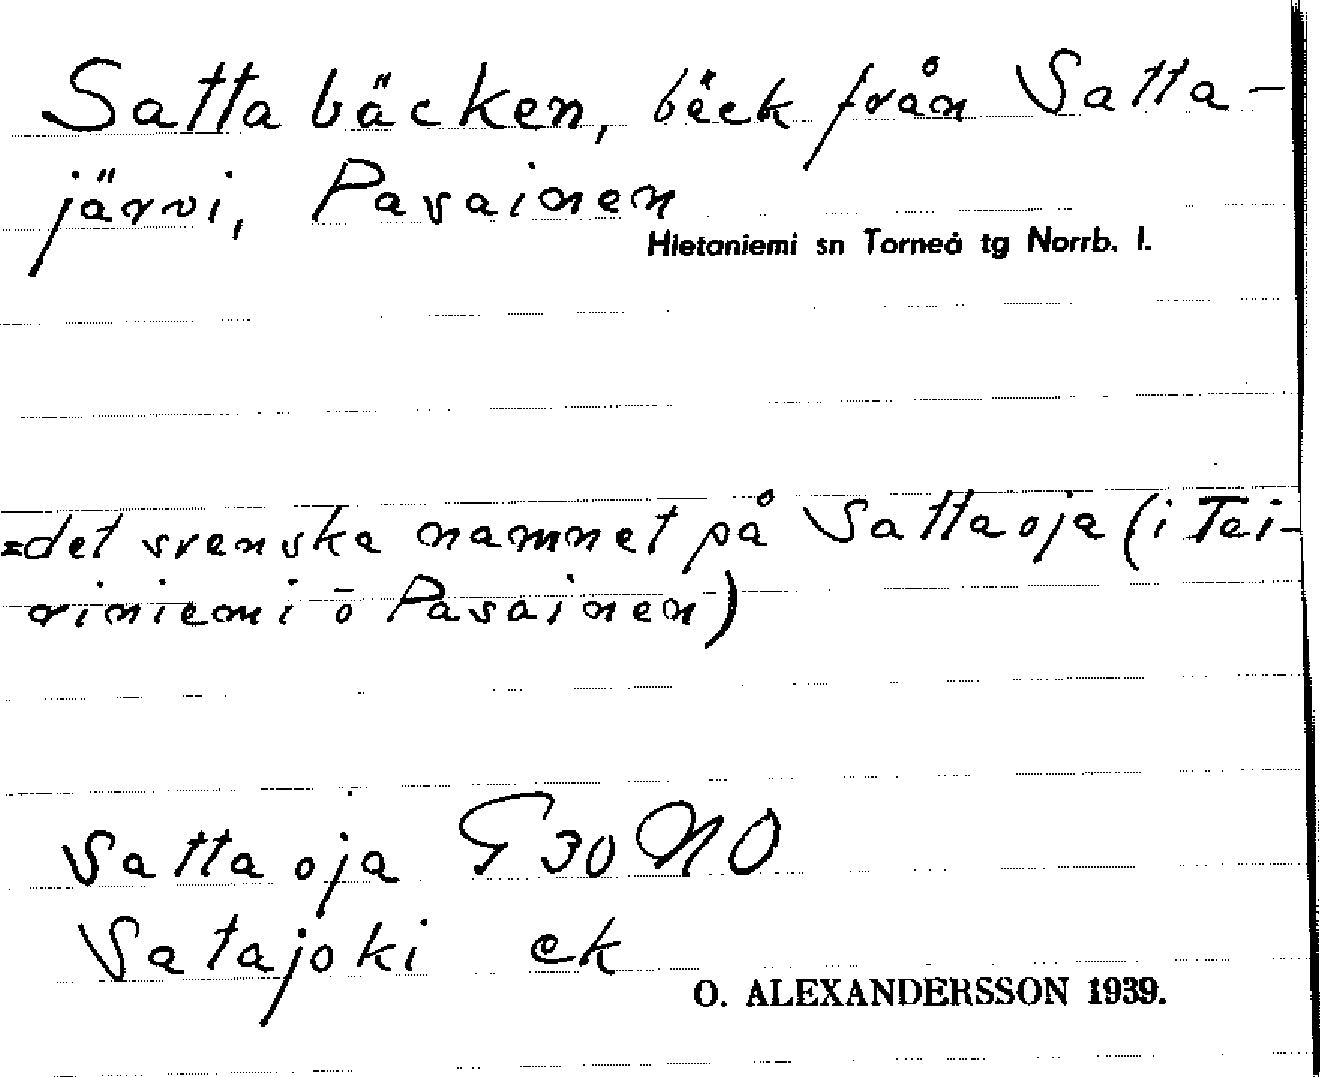 Sattabäcken, bäck från Satta-
järvi, Pasainen
Hietaniemi sn Torneå tg Norrb. l.
=det svenska namnet på Sattaoja (i Tai-
riniemi o Pasainen)
Sattaoja G 30 NO
Satajoki ek
O. ALEXANDERSSON 1939.